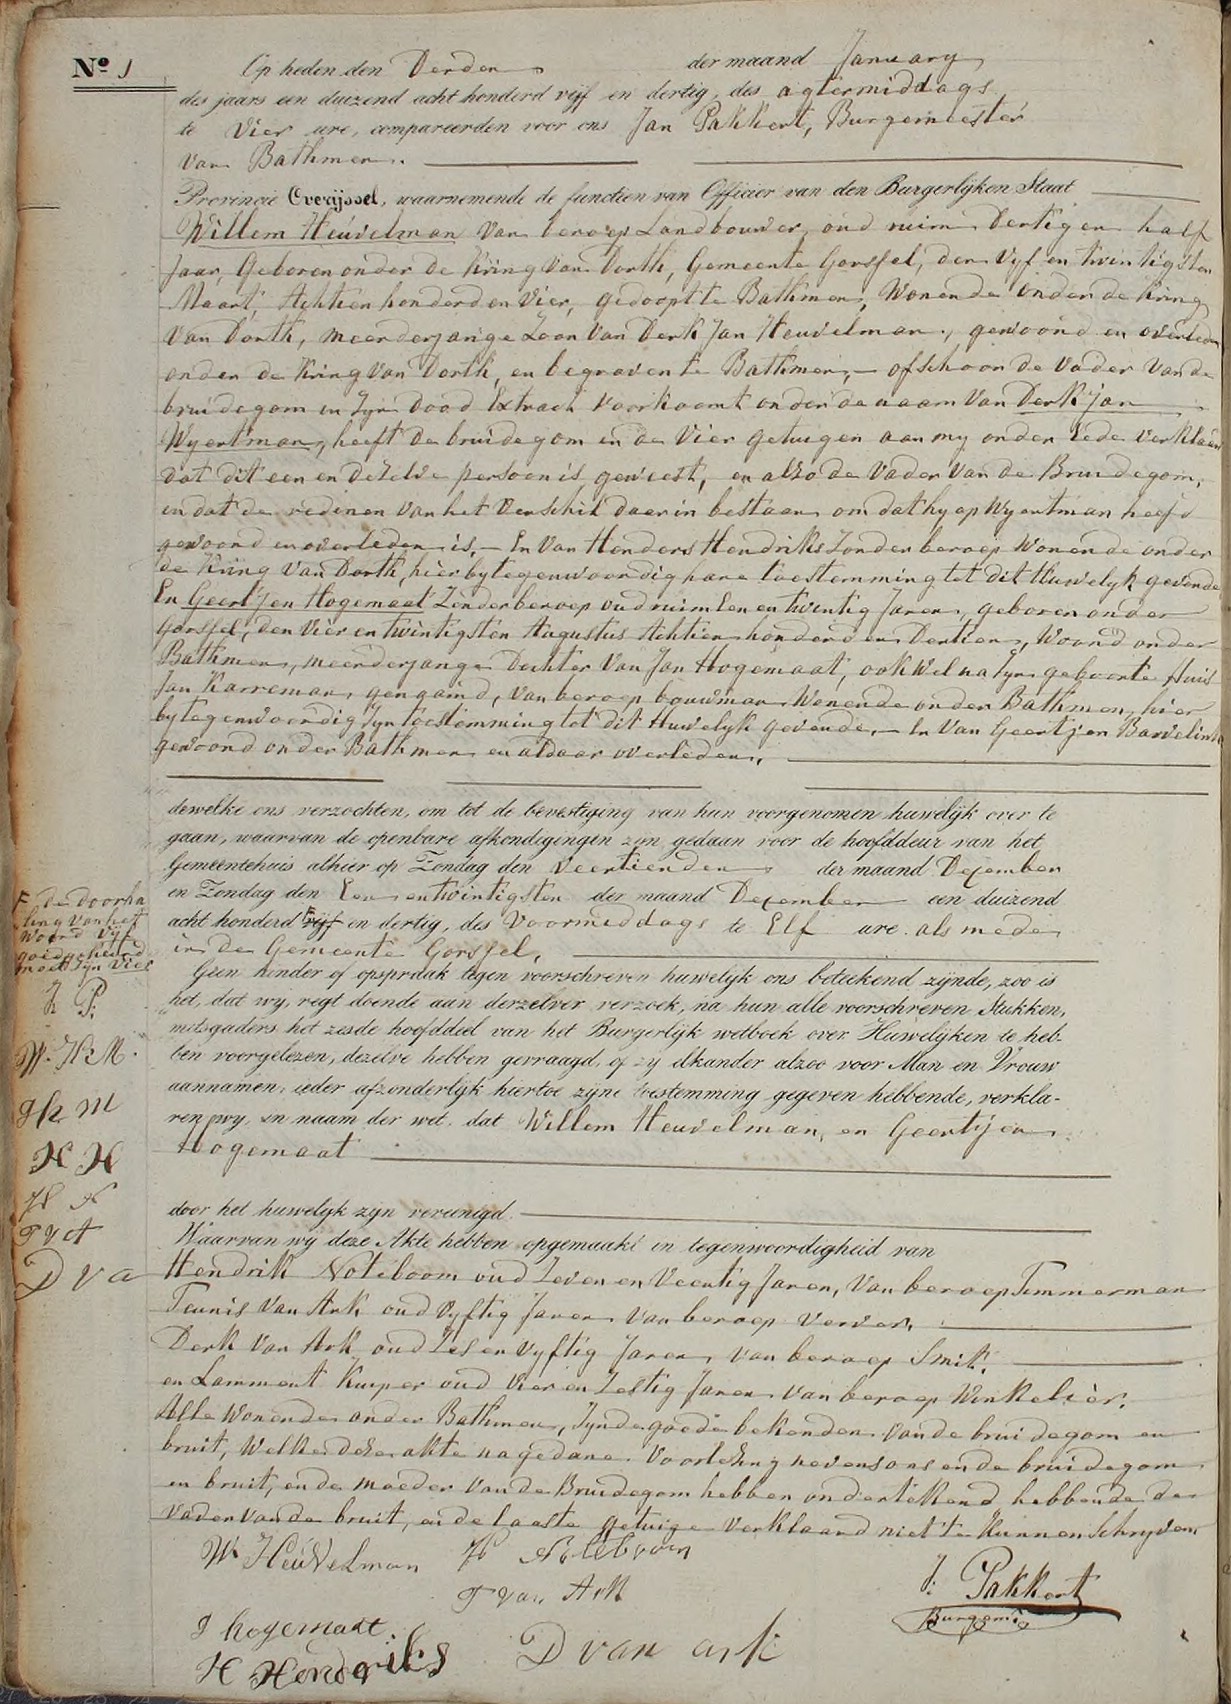 No 1
Op heden den Derden der maand January
des jaars een duizend acht honderd vijf en dertig, des agtermiddags
te Vier ure, compareerden voor ons Jan Pakkert, Burgemeester
van Bathmen.
Provincie Overijssel, waarnemende de functien van Officier van den Burgerlijken Staat
Willem Heuvelman van beroep Landbouwer, oud ruim dertig en half
Jaar, Geboren onder de Kring van Dorth, Gemeente Gorssel, den Vyf en twintigsten
Maart, Achtien honderd en Vier, gedoopt te Bathmen, Wonende onder de Kring
van Dorth, meerderjarige Zoon van Derk Jan Heuvelman, gewoond en overleden
onder de Kring van Dorth, en begraven te Bathmen, - ofschoon de Vader van de
bruidegom in Zyn dood Extract voorkoomt onder de naam van Derk Jan
Wyertman, heeft de bruidegom en de Vier getuigen aan my onder Eede verklaard
dat dit een en dezelve persoon is geweest, en alzo de Vader van de Bruidegom,
en dat de redenen van het Verschil daar in bestaan om dat hy op Wyertman heeft
gewoond en overleden is, - En Van Henders Hendriks Zonder beroep Wonende onder
de Kring van Dorth, hier by tegenwoordig hare toestemming tot dit Huwelyk gevende
En Geertjen Hogemaat Zonder beroep oud ruim Een en twintig Jaren, geboren onder
Gorssel, den Vier en twintigsten Augustus Achtien honderd en Dertien, Woond onder
Bathmen, meerderjarige Dochter van Jan Hogemaat, ook wel na Zyn geboorte Huis
Jan Karreman, gengaamd, van beroep bouwman Wonende onder Bathmen, hier
by tegenwoordig Zyn toestemming tot dit Huwelyk gevende, - En Van Geertjen Barvelink
gewoond onder Bathmen en aldaar overleden,
dewelke ons verzochten, om tot de bevestiging van hun voorgenomen huwelijk over te
gaan, waarvan de openbare afkondegingen zyn gedaan voor de hoofddeur van het
Gemeentehuis alhier op Zondag den Veertienden der maand Dezember
en Zondag den Een entwintigsten der maand Dezember een duizend
acht honderd F vijf en dertig, des Voormiddags te Elf ure. als mede
in de Gemeente Gorssel,
F, de doorha
ling van het
Woord Vijf
goedgekeurd
moet Zyn Vier
J P.
W. H M.
g h m
H H
H N
T v A
D v a
Geen hinder of opspraak tegen voorschreven huwelijk ons beteekend zijnde, zoo is
het, dat wy, regt doende aan derzelver verzoek, na hun alle voorschreven Stukken,
mitsgaders het zesde hoofddeel van het Burgerlijk wetboek over Huwelijken te heb-
ben voorgelezen, dezelve hebben gevraagd, of zij elkander alzoo voor Man en Vrouw
aannamen, ieder afzonderlijk hiertoe zijne toestemming gegeven hebbende, verkla-
ren wy, in naam der wet, dat Willem Heuvelman, en Geertijen
Hogemaat
door het huwelijk zijn vereenigd.
Waarvan wij deze Akte hebben opgemaakt in tegenwoordigheid van
Hendrik Noteboom oud Zeven en Veertig Jaren, van beroep Timmerman
Teunis van Ark oud Vyftig Jaren van beroep Verver,
Derk van Ark oud Zes en Vyftig Jaren van beroep Smit,
en Lammert Kuiper oud Vier en Zestig Jaren van beroep Winkelier.
Alle Wonende onder Bathmen, Zynde goede bekenden van de bruidegom en
bruit, Welke deze akte na gedane Voorlezing nevens ons en de bruidegom
en bruit, en de moeder van de Bruidegom hebben ondertekend, hebbende de
vader van de bruit, en de laaste getuige verklaard niet te kunnen schryven
W Heuvelman H Noteboom
T van Ark
J. Pakkert
Burgemr
g hogemaat
H Hendriks D van ark